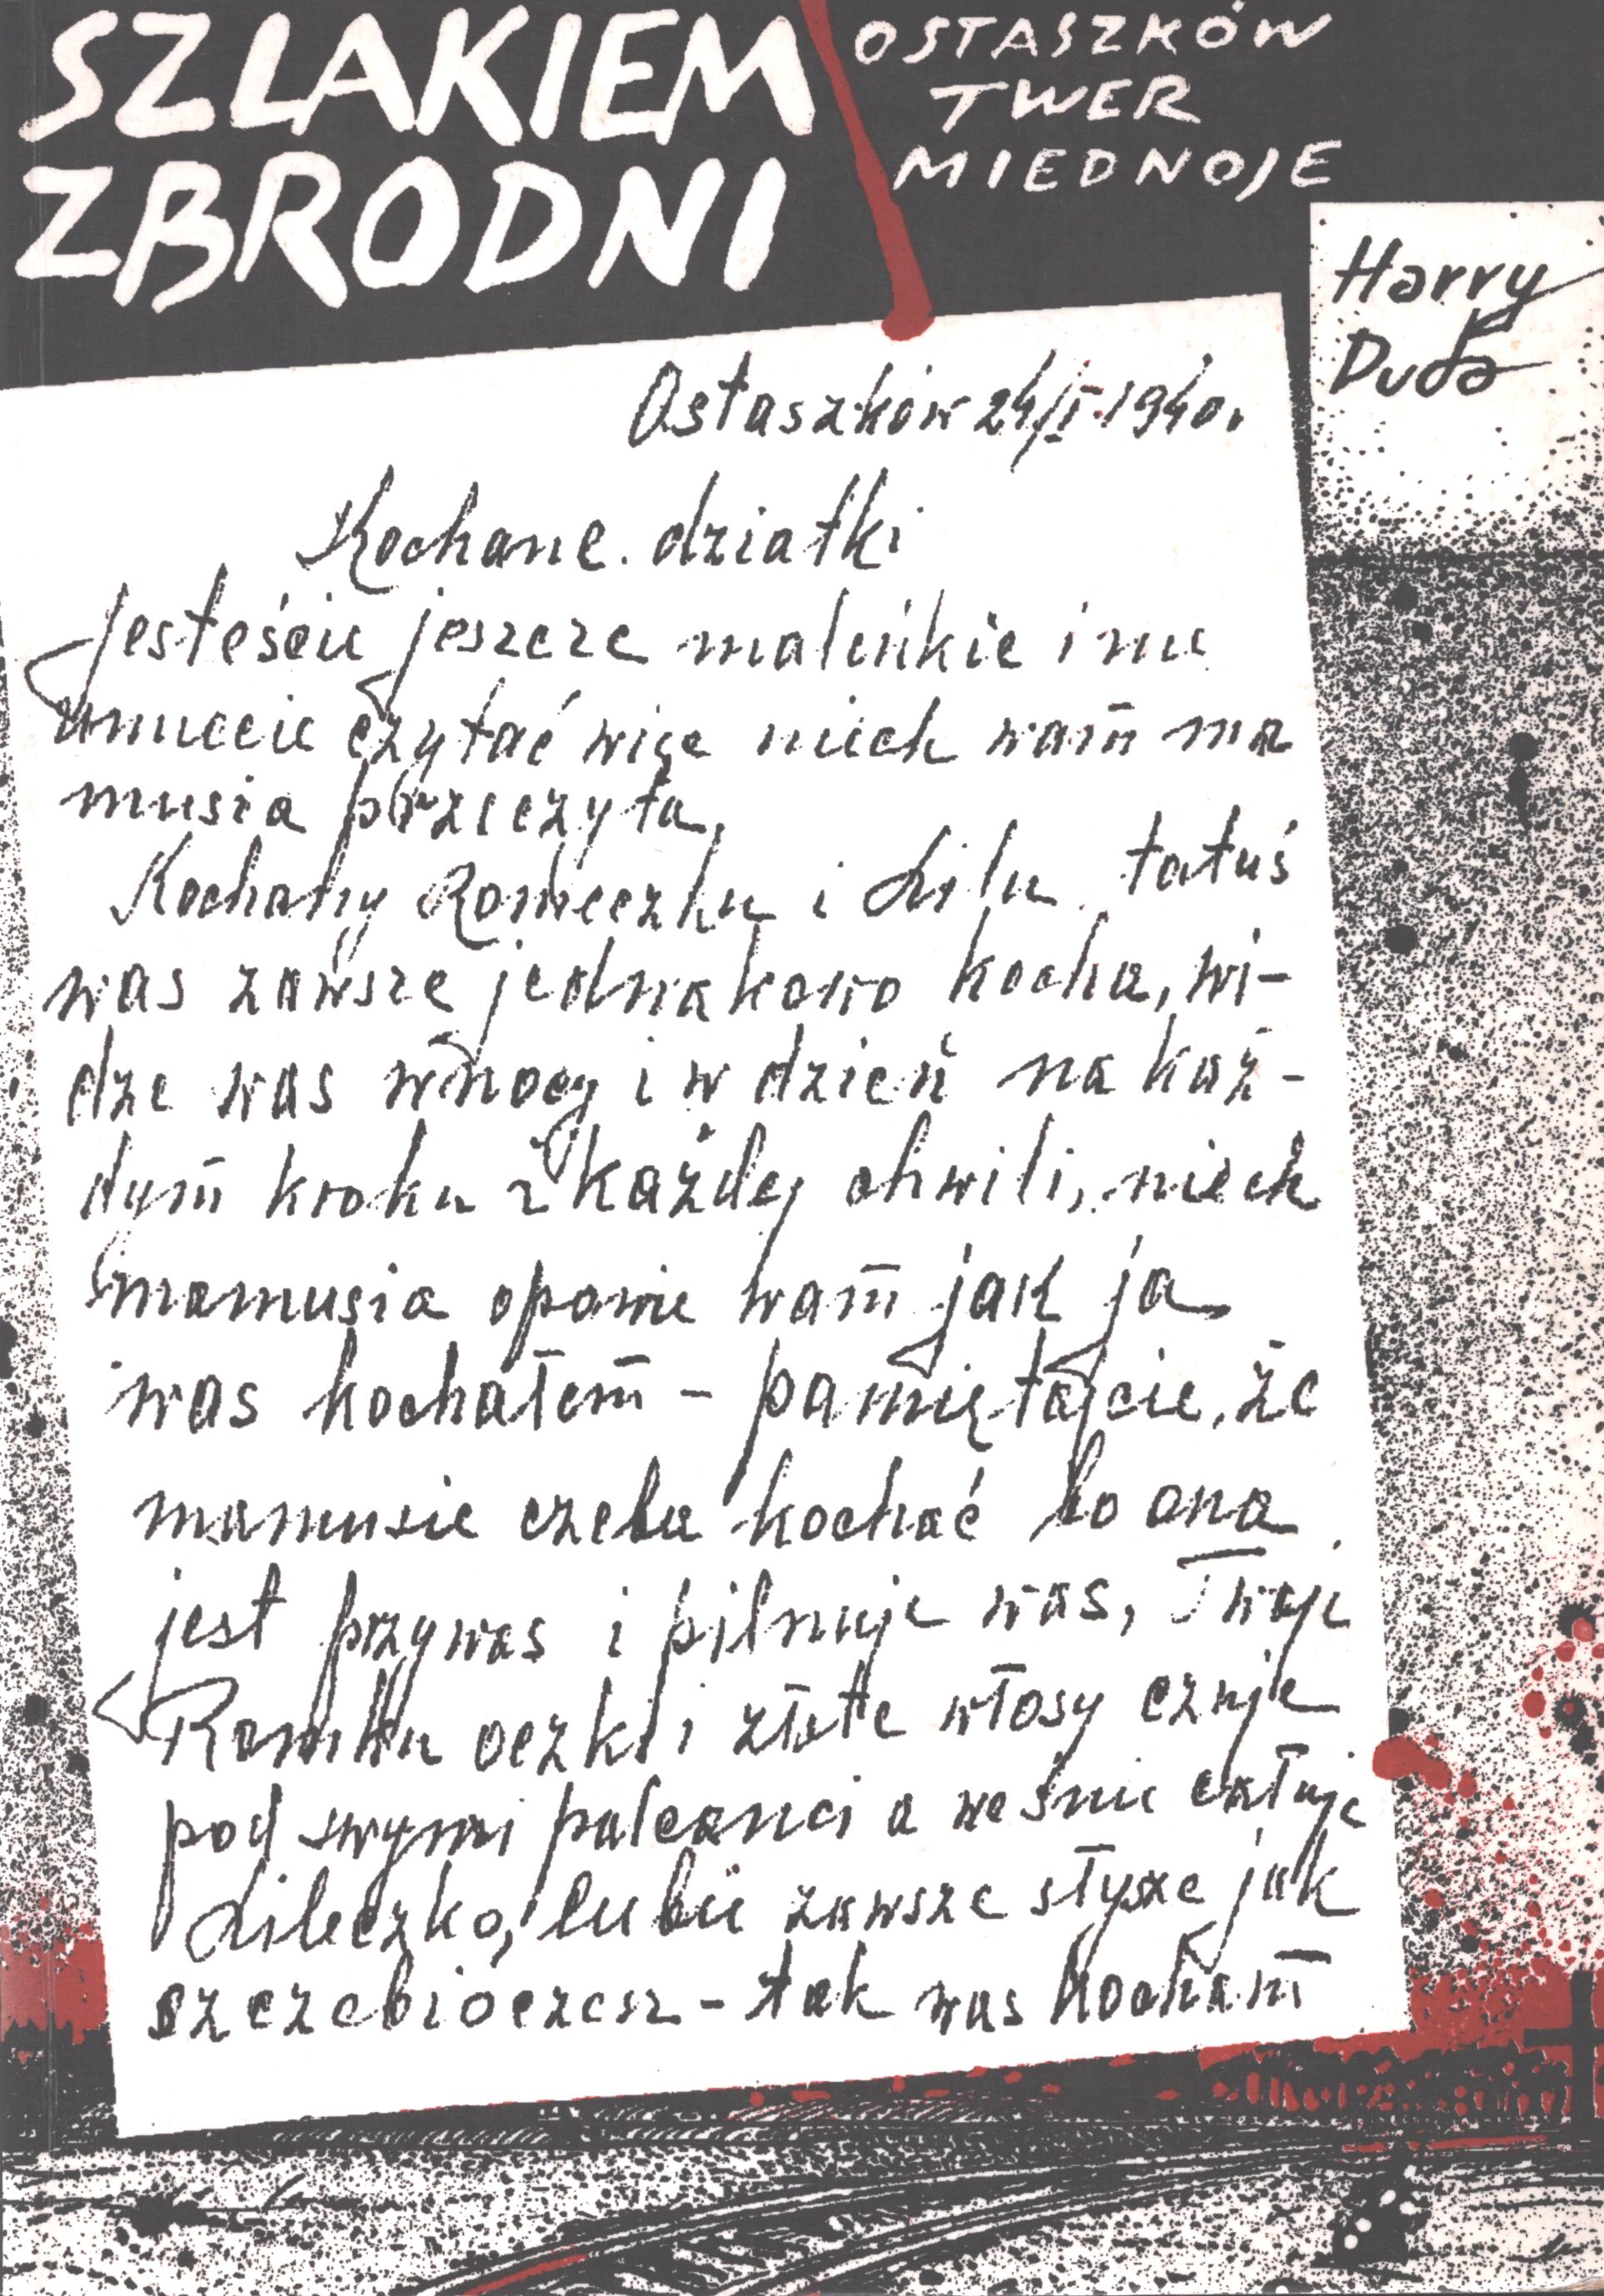 SZLAKIEM
ZBRODNI
OSTASZKÓW
TWER
MIEDNOJE
Harry
Duda
Ostaszków 24/II.1940r.
Kochane. dziatki
Jesteście jeszcze maleńkie i nie
umiecie czytać więc niech wam ma
musia przeczyta,
Kochany Romeczku i Lilu tatuś
was zawsze jednakowo kocha, wi-
dze was w nocy i w dzień na każ-
dym kroku z każdej chwili, niech
mamusia opowie wam jak ja
was kochałem - pamiętajcie, że
mamusie czeba kochać bo ona
jest przy was i pilnuje was, Twoje
Romku oczki i złote włosy czuje
pod swymi palcami a we śnie całuje
Lileczko, lubie zawsze słysze jak
szczebioczesz - tak was kocham